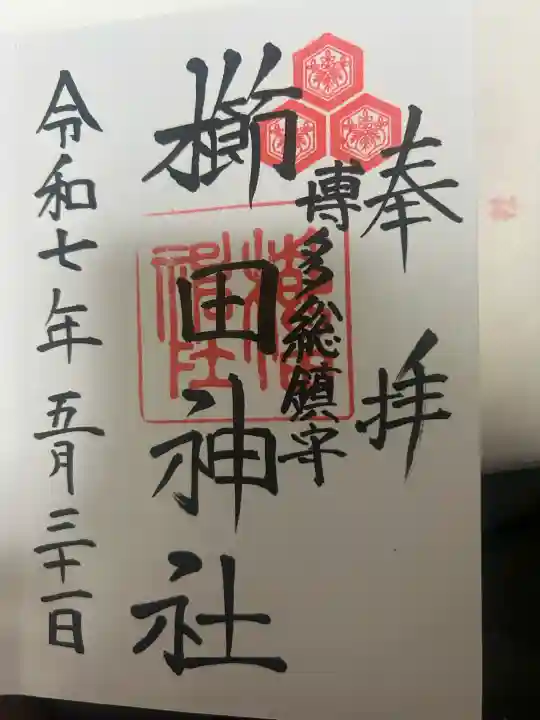 奉拝
博多総鎮守
櫛田神社
令和七年五月三十一日